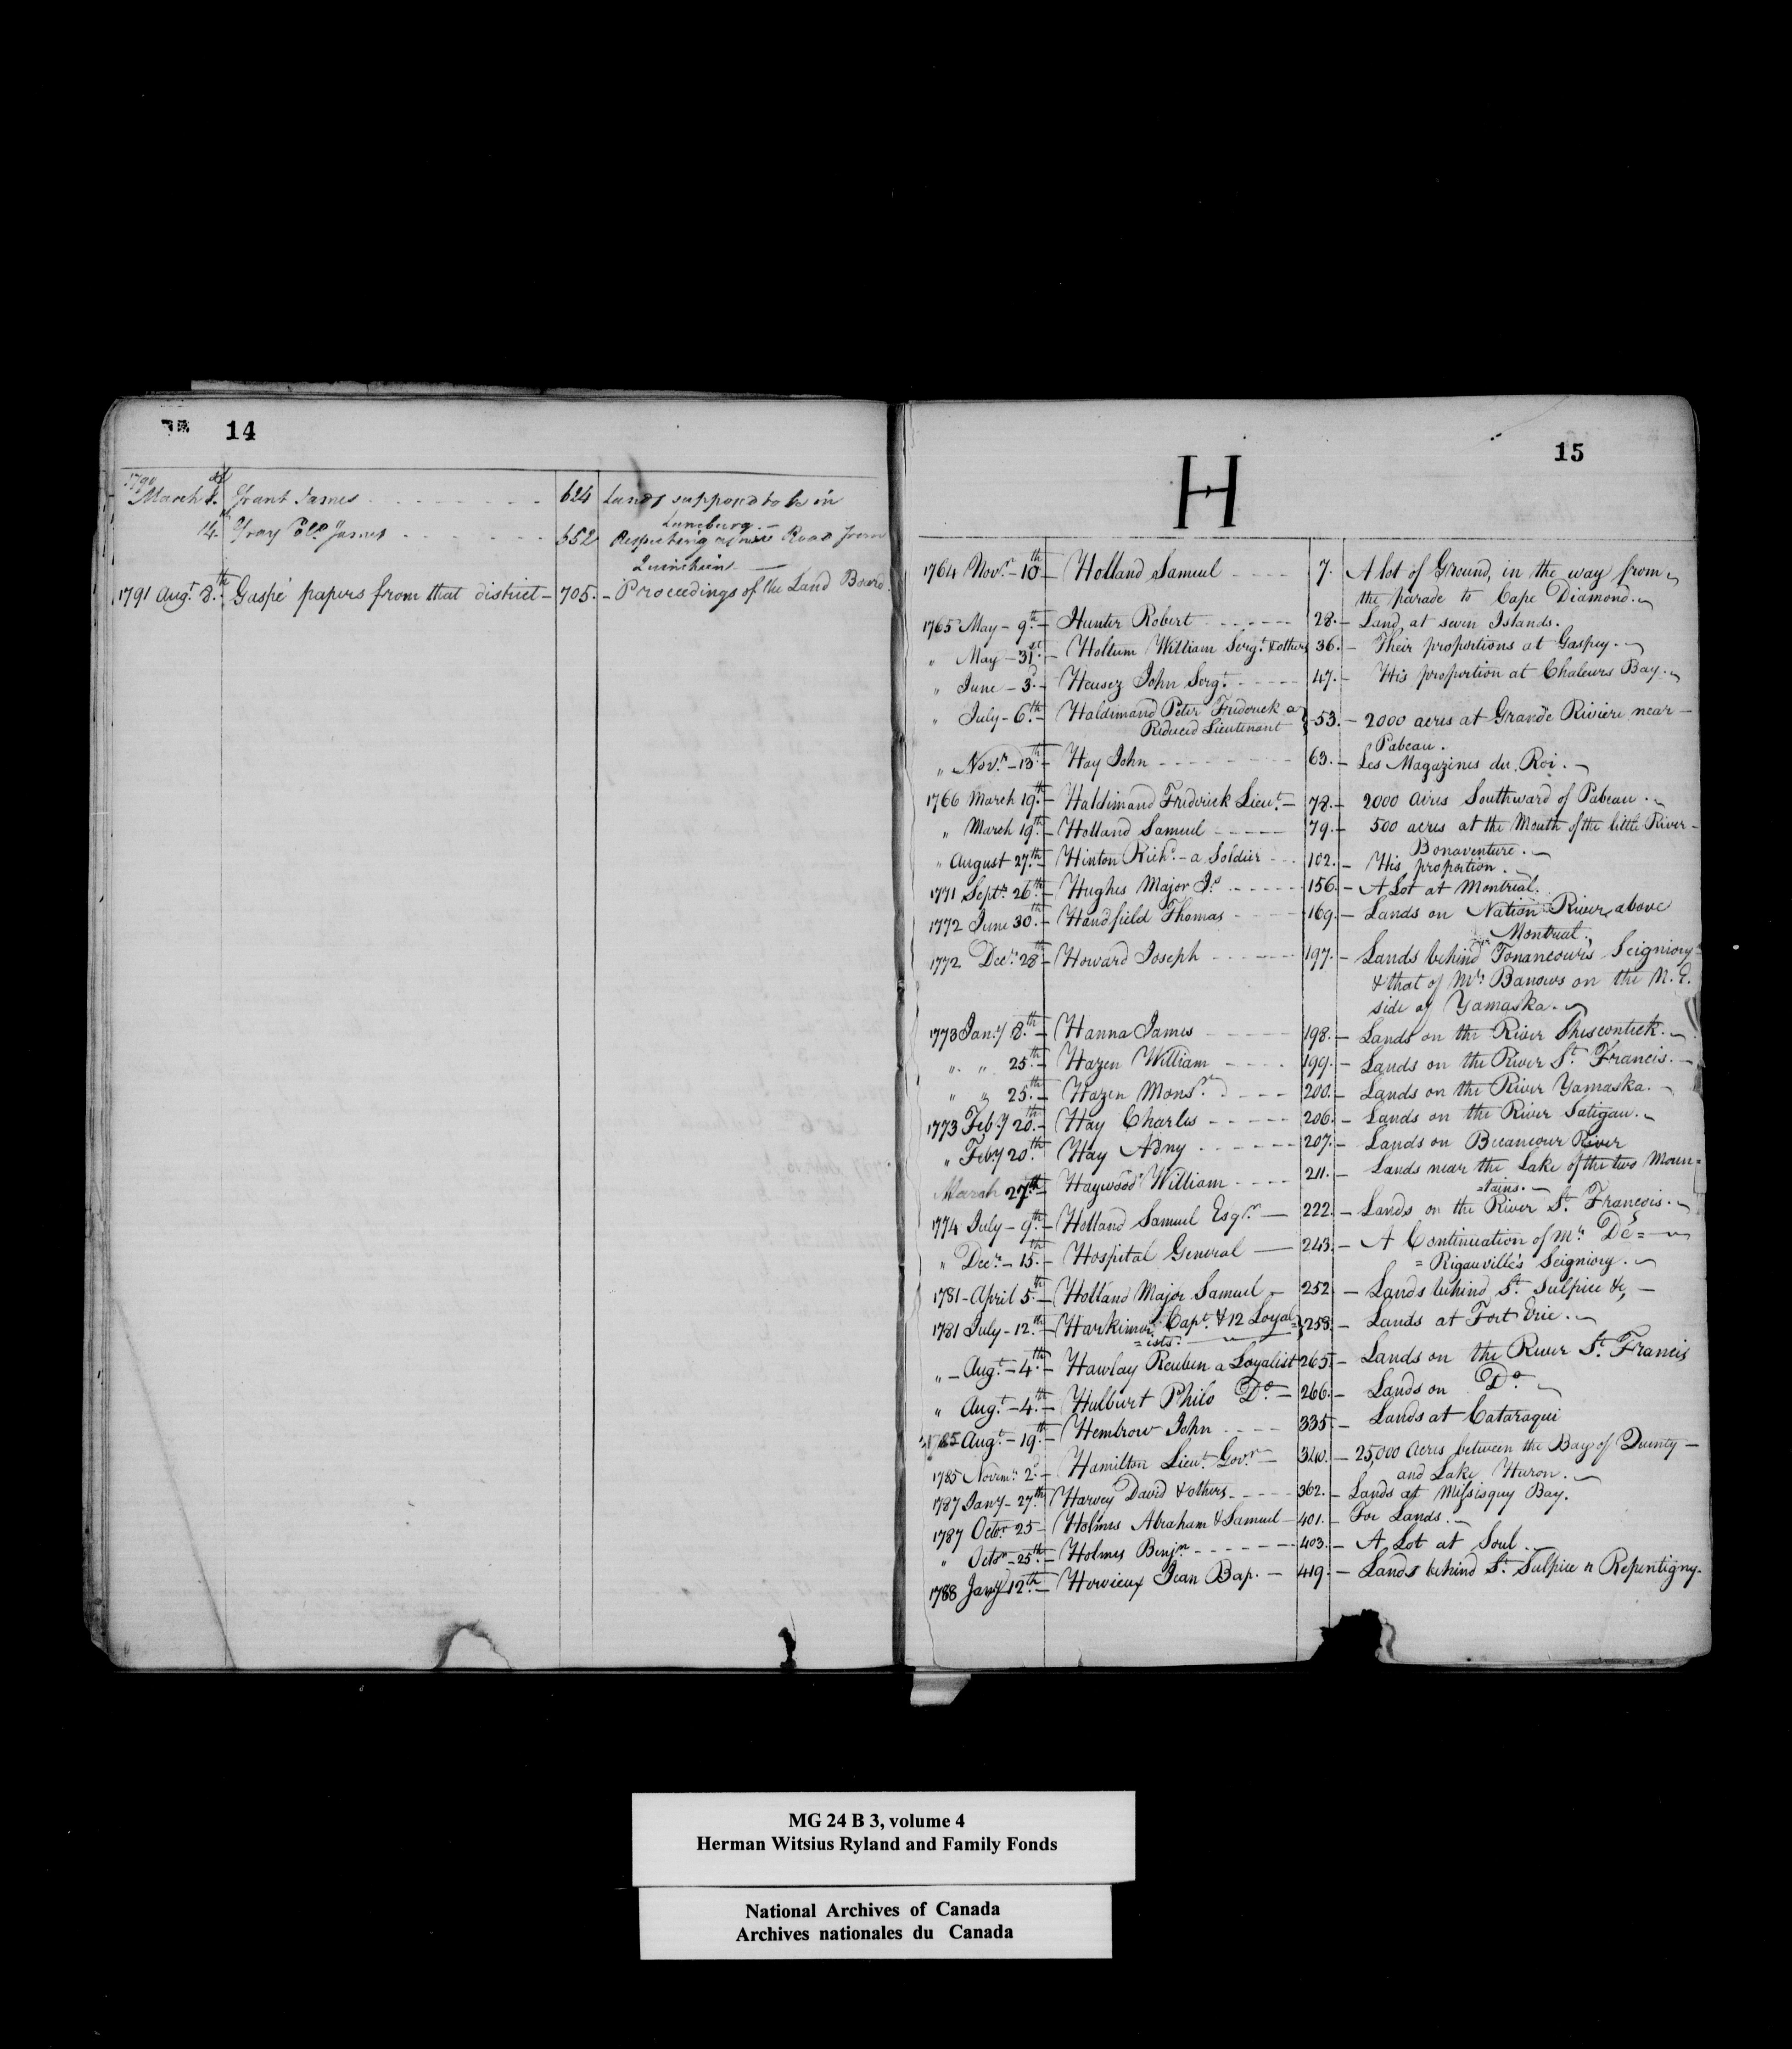 14
1790
March 1st Grant James 624 Lands supposed to be in
Luneburg.
14th Gray James 652 Respecting a new Road from
1791 Augt. 8.th Gaspé papers from that district - 705. - Proceedings of the Land Board.
15
H
1764 Novr. - 10th - Holland Samuel 7. A lot of Ground, in the way from
the parade to Cape Diamond.
1765 May - 9.th - Hunter Robert 28. - Land at seven Islands.
" May - 31st. - Holtum William Sergt. & others 36. - Their proportions at Gaspey.
" June - 3d. - Heusez John Sergt. 47. - His proportion at Chaleurs Bay.
" July - 6.th - Haldimand Peter Frederick a
Reduced Lieutenant } 53. - 2000 acres at Grande Riviere near -
Pabeau.
" Novr. - 13th. - Hay John 63. - Les Magazines du Roi.
1766 March 19.th - Haldimand Frederick Lieut. - 78. - 2000 acres Southward of Pabeau.
" March 19th. - Holland Samuel 79. - 500 acres at the Mouth of the little River -
Bonaventure.
" August 27.th - Hinton Richd. - a Soldier 102. - His proportion.
1771 Septr. 26th - Hughes Major Js. 156. - A Lot at Montreal.
1772 June 30.th - Handfield Thomas 169. - Lands on Nation River above
Montreal.
1772 Decr. 28th - Howard Joseph 197. - Lands behind Tonancour's Seigniory
& that of Mrs. Barrows on the N. E.
side of Yamaska.
1773 Jany. 8.th - Hanna James 198. - Lands on the River
" " 25.th - Hazen William 199. - Lands on the River St. Francis.
" " 25.th - Hazen Monsr. 200. - Lands on the River Yamaska.
1773 Feby 20.th - Hay Charles 206. - Lands on the River Satigan.
" Feby 20th Hay Adny 207. - Lands on Becancour River
March 27.th - Haywood William 211. - Lands near the Lake of the two Moun=
=tains.
1774 July - 9.th - Holland Samuel Esqr. - 222. - Lands on the River St. Francois.
" Decr. - 15.th - Hospital General - 243. - A Continuation of Mr. De=
=Rigauville's Seigniory.
1781 - April 5.th - Holland Major Samuel - 252 - Lands behind St. Sulpice &c, -
1781 July - 12.th - Harkimer Capt. & 12 Loyal=
=ists. } 253. - Lands at Fort Erie.
" - Augt. - 4.th - Hawlay Reuben a Loyalist 265 - Lands on the River St. Francis
" Augt. - 4.th - Hulburt Philo Do. - 266. - Lands on Do.
1785 Augt. - 19.th - Hembrow John 335 - Lands at Cataraqui
1785 Novemr. 2d. - Hamilton Lieut. Govr. - 340. - 25,000 acres between the Bay of Quinty -
and Lake Huron.
1787 Jany - 27.th Harvey David & others 362. - Lands at Missisquy Bay.
1787 Octor. 25 - Holmes Abraham & Samuel - 401. - For Lands.
" Octor. - 25th. - Holmes Benjn. 403. - A Lot at Sorel
1788 Jany 12.th - Hervieux Jean Bap. - 419. - Lands behind St. Sulpice & Repentigny.
MG 24 B 3, volume 4
Herman Witsius Ryland and Family Fonds
National Archives of Canada
Archives nationales du Canada